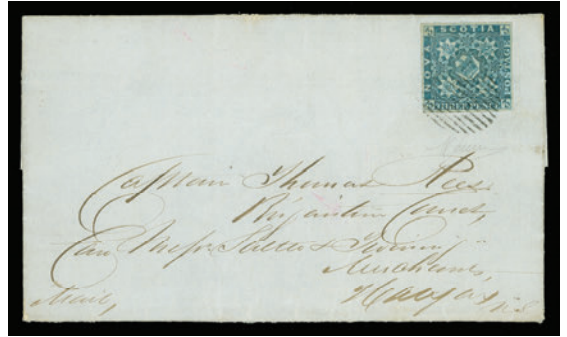 NOVA SCOTIA POSTAGE
THREE PENCE
Captain Thomas
Brigantine
Care Messrs Salter & Twining
Merchants,
Halifax, N.S
Mail,